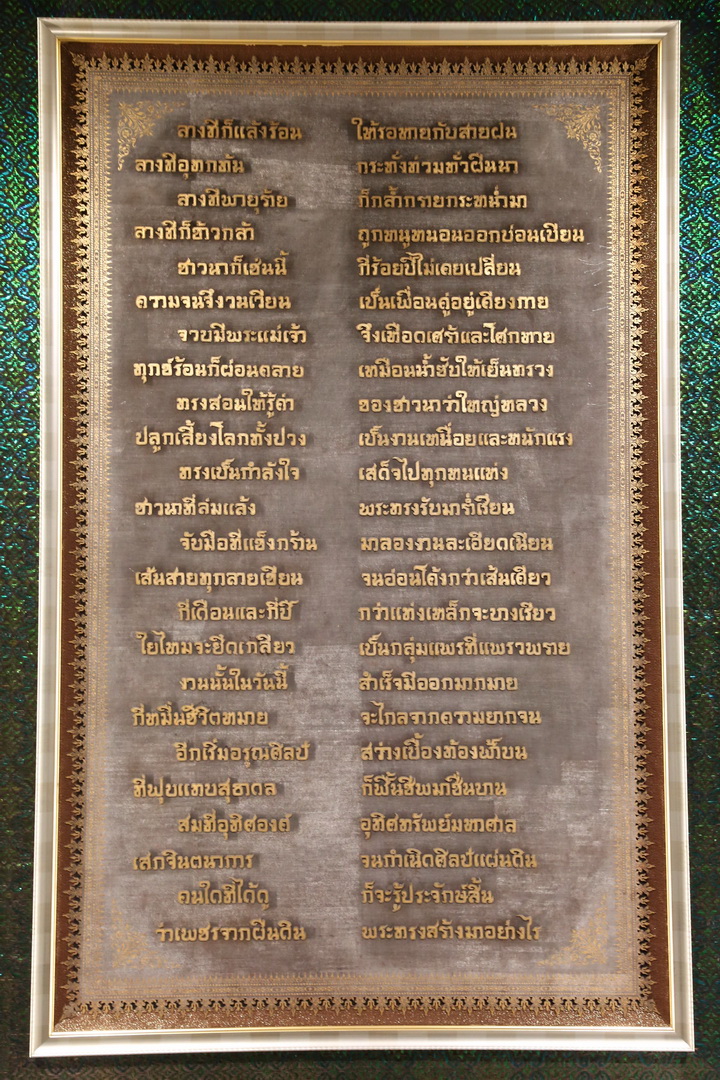 ลางทีก็แล้งร้อน ให้รอหายกับสายฝน
ลางทีอุทกท้น กระทั่งท่วมทั่วผืนนา
ลางทีพายุร้าย ก็กล้ำกรายกระหน่ำมา
ลางทีก็ข้าวกล้า ถูกหนูหนอนออกบ่อนเบียน
ชาวนาก็เช่นนี้ กี่ร้อยปีไม่เคยเปลี่ยน
ความจนจึงวนเวียน เป็นเพื่อนคู่อยู่เคียงกาย
จวบมีพระแม่เจ้า จึงเหือดเศร้าและโศกหาย
ทุกข์ร้อนก็ผ่อนคลาย เหมือนน้ำซับให้เย็นทรวง
ทรงสอนให้รู้ค่า ของชาวนาว่าใหญ่หลวง
ปลูกเลี้ยงโลกทั้งปวง เป็นงานเหนื่อยและหนักแรง
ทรงเป็นกำลังใจ เสด็จไปทุกหนแห่ง
ชาวนาที่ล่มแล้ง พระทรงรับมาร่ำเรียน
จับมือที่แข็งกร้าน มาลองงานละเอียดเนียน
เส้นสายทุกลายเขียน จนอ่อนโค้งกว่าเส้นเคียว
กี่เดือนและกี่ปี กว่าแท่งเหล็กจะบางเรียว
ใยไหมจะยึดเกลียว เป็นกลุ่มแพรที่แพรวพราย
งานนั้นในวันนี้ สำเร็จมีออกมากมาย
กี่หมื่นชีวิตหมาย จะไกลจากความยากจน
อีกเริ่มอรุณศิลป์ สว่างเบื้องท้องฟ้าบน
ที่ฟุบแทบสุธาดล ก็ฟื้นชีพมาชื่นบาน
สมที่อุทิศองค์ อุทิศทรัพย์มหาศาล
เสกจินตนาการ จนกำเนิดศิลป์แผ่นดิน
คนใดที่ได้ดู ก็จะรู้ประจักษ์สิ้น
ว่าเพชรจากผืนดิน พระทรงสร้างมาอย่างไร